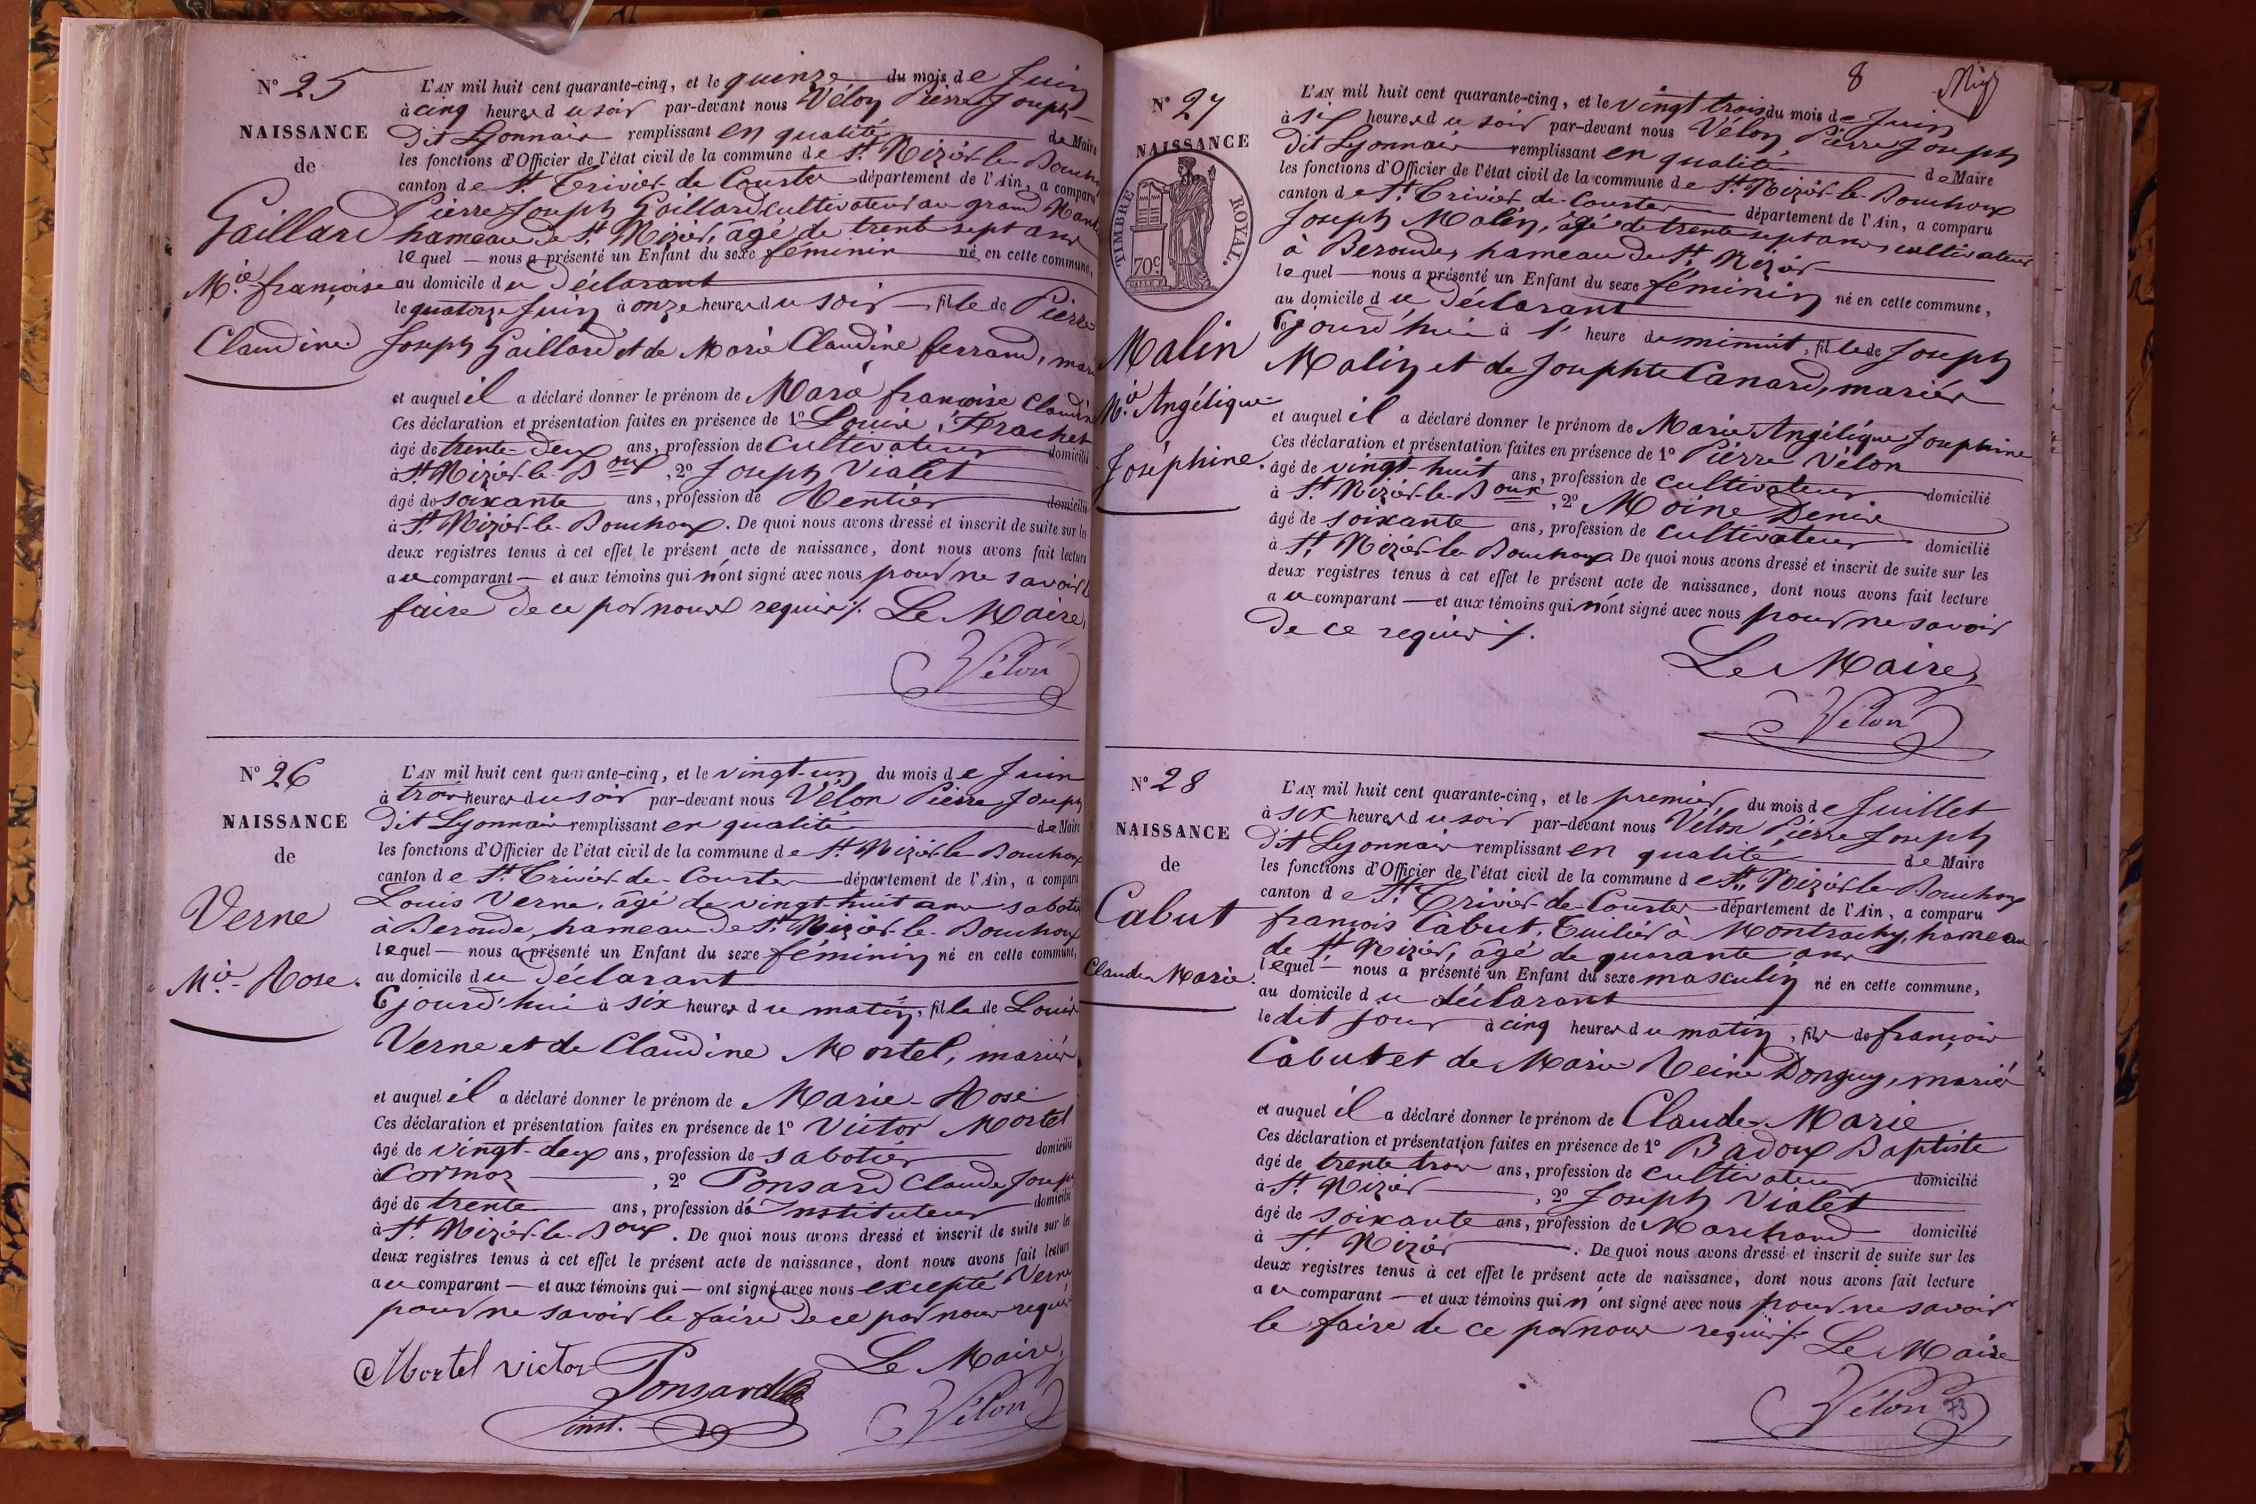 N° 25
NAISSANCE
de
Gaillard
M.ie françoise
Claudine
L'AN mil huit cent quarante-cinq, et le quinze du mois de Juin
à cinq heures du soir par-devant nous Vélon Pierre Joseph
dit Lyonnais remplissant en qualité de Maire
les fonctions d'Officier de l'état civil de la commune de St. Nizier-le-Bouchoux
canton de St. Trivier-de-Courtes département de l'Ain, a comparu
Pierre Joseph Gaillard cultivateur au grand Nant
hameau de St. Nizier, âgé de trente sept ans
lequel — nous a présenté un Enfant du sexe féminin né en cette commune,
au domicile du déclarant
le quatorze Juin à onze heures du soir fille de Pierre
Joseph Gaillard et de Marie Claudine ferrand, mariés
et auquel il a déclaré donner le prénom de Marie françoise Claudine
Ces déclaration et présentation faites en présence de 1° Louis Trachet
âgé de trente-deux ans, profession de cultivateur domicilié
à St. Nizier-le-Boux, 2° Joseph Vialet
âgé de soixante ans, profession de Rentier domicilié
à St. Nizier-le-Bouchoux. De quoi nous avons dressé et inscrit de suite sur les
deux registres tenus à cet effet le présent acte de naissance, dont nous avons fait lecture
au comparant — et aux témoins qui n'ont signé avec nous pour ne savoir le
faire de ce par nous requis ./. Le Maire,
Vélon
N° 26
NAISSANCE
de
Verne
M.ie-Rose.
L'AN mil huit cent quarante-cinq, et le vingt-un du mois de Juin
à trois heures du soir par-devant nous Vélon Pierre Joseph
dit Lyonnais remplissant en qualité de Maire
les fonctions d'Officier de l'état civil de la commune de St. Nizier-le-Bouchoux
canton de St. Trivier-de-Courtes département de l'Ain, a comparu
Louis Verne, âgé de vingt-huit ans sabotier
à Beroude, hameau de St. Nizier-le-Bouchoux
lequel — nous a présenté un Enfant du sexe féminin né en cette commune,
au domicile du déclarant
Cejourd'hui à six heures du matin, fille de Louis
Verne et de Claudine Mortel, mariés
et auquel il a déclaré donner le prénom de Marie-Rose
Ces déclaration et présentation faites en présence de 1° Victor Mortel
âgé de vingt-deux ans, profession de sabotier domicilié
à Cormoz, 2° Ponsard Claude Joseph
âgé de trente ans, profession d'Instituteur domicilié
à St. Nizier-le-Boux. De quoi nous avons dressé et inscrit de suite sur les
deux registres tenus à cet effet le présent acte de naissance, dont nous avons fait lecture
au comparant — et aux témoins qui — ont signé avec nous excepté Verne
pour ne savoir le faire de ce par nous requis
Mortel victor Ponsard Le Maire,
inst. Vélon
8
N° 27
NAISSANCE
TIMBRE ROYAL.
70c.
Malin
M.ie Angélique
Joséphine.
L'AN mil huit cent quarante-cinq, et le vingt trois du mois de Juin
à six heures du soir par-devant nous Vélon Pierre Joseph
dit Lyonnais remplissant en qualité de Maire
les fonctions d'Officier de l'état civil de la commune de St. Nizier-le-Bouchoux
canton de St. Trivier-de-Courtes département de l'Ain, a comparu
Joseph Malin, âgé de trente sept ans, cultivateur
à Beroude, hameau de St. Nizier
lequel — nous a présenté un Enfant du sexe féminin né en cette commune,
au domicile du déclarant
Cejourd'hui à 1' heure de minuit, fille de Joseph
Malin et de Josephte Canard, mariés
et auquel il a déclaré donner le prénom de Marie Angélique Joséphine
Ces déclaration et présentation faites en présence de 1° Pierre Vélon
âgé de vingt-huit ans, profession de cultivateur domicilié
à St. Nizier-le-Boux, 2° Moine Denis
âgé de soixante ans, profession de cultivateur domicilié
à St. Nizier-le-Bouchoux. De quoi nous avons dressé et inscrit de suite sur les
deux registres tenus à cet effet le présent acte de naissance, dont nous avons fait lecture
au comparant — et aux témoins qui n'ont signé avec nous pour ne savoir
de ce requis ./.
Le Maire,
Vélon
N° 28
NAISSANCE
de
Cabut
Claude Marie.
L'AN mil huit cent quarante-cinq, et le premier du mois de Juillet
à six heures du soir par-devant nous Vélon Pierre Joseph
dit Lyonnais remplissant en qualité de Maire
les fonctions d'Officier de l'état civil de la commune de St. Nizier-le-Bouchoux
canton de St. Trivier-de-Courtes département de l'Ain, a comparu
françois Cabut, Tuilier à Montrachy, hameau
de St. Nizier, âgé de quarante ans
lequel — nous a présenté un Enfant du sexe masculin né en cette commune,
au domicile du déclarant
ledit jour à cinq heures du matin, fils de françois
Cabut et de Marie Reine Donguy, mariés
et auquel il a déclaré donner le prénom de Claude Marie
Ces déclaration et présentation faites en présence de 1° Badoux Baptiste
âgé de trente trois ans, profession de cultivateur domicilié
à St. Nizier, 2° Joseph Vialet
âgé de soixante ans, profession de Marchand domicilié
à St. Nizier. De quoi nous avons dressé et inscrit de suite sur les
deux registres tenus à cet effet le présent acte de naissance, dont nous avons fait lecture
au comparant — et aux témoins qui n'ont signé avec nous pour ne savoir
le faire de ce par nous requis ./. Le Maire
Vélon
73